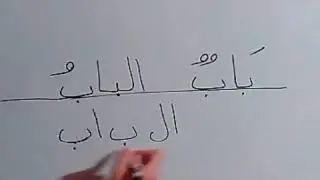 بَابٌ البابُ
ال ب اب